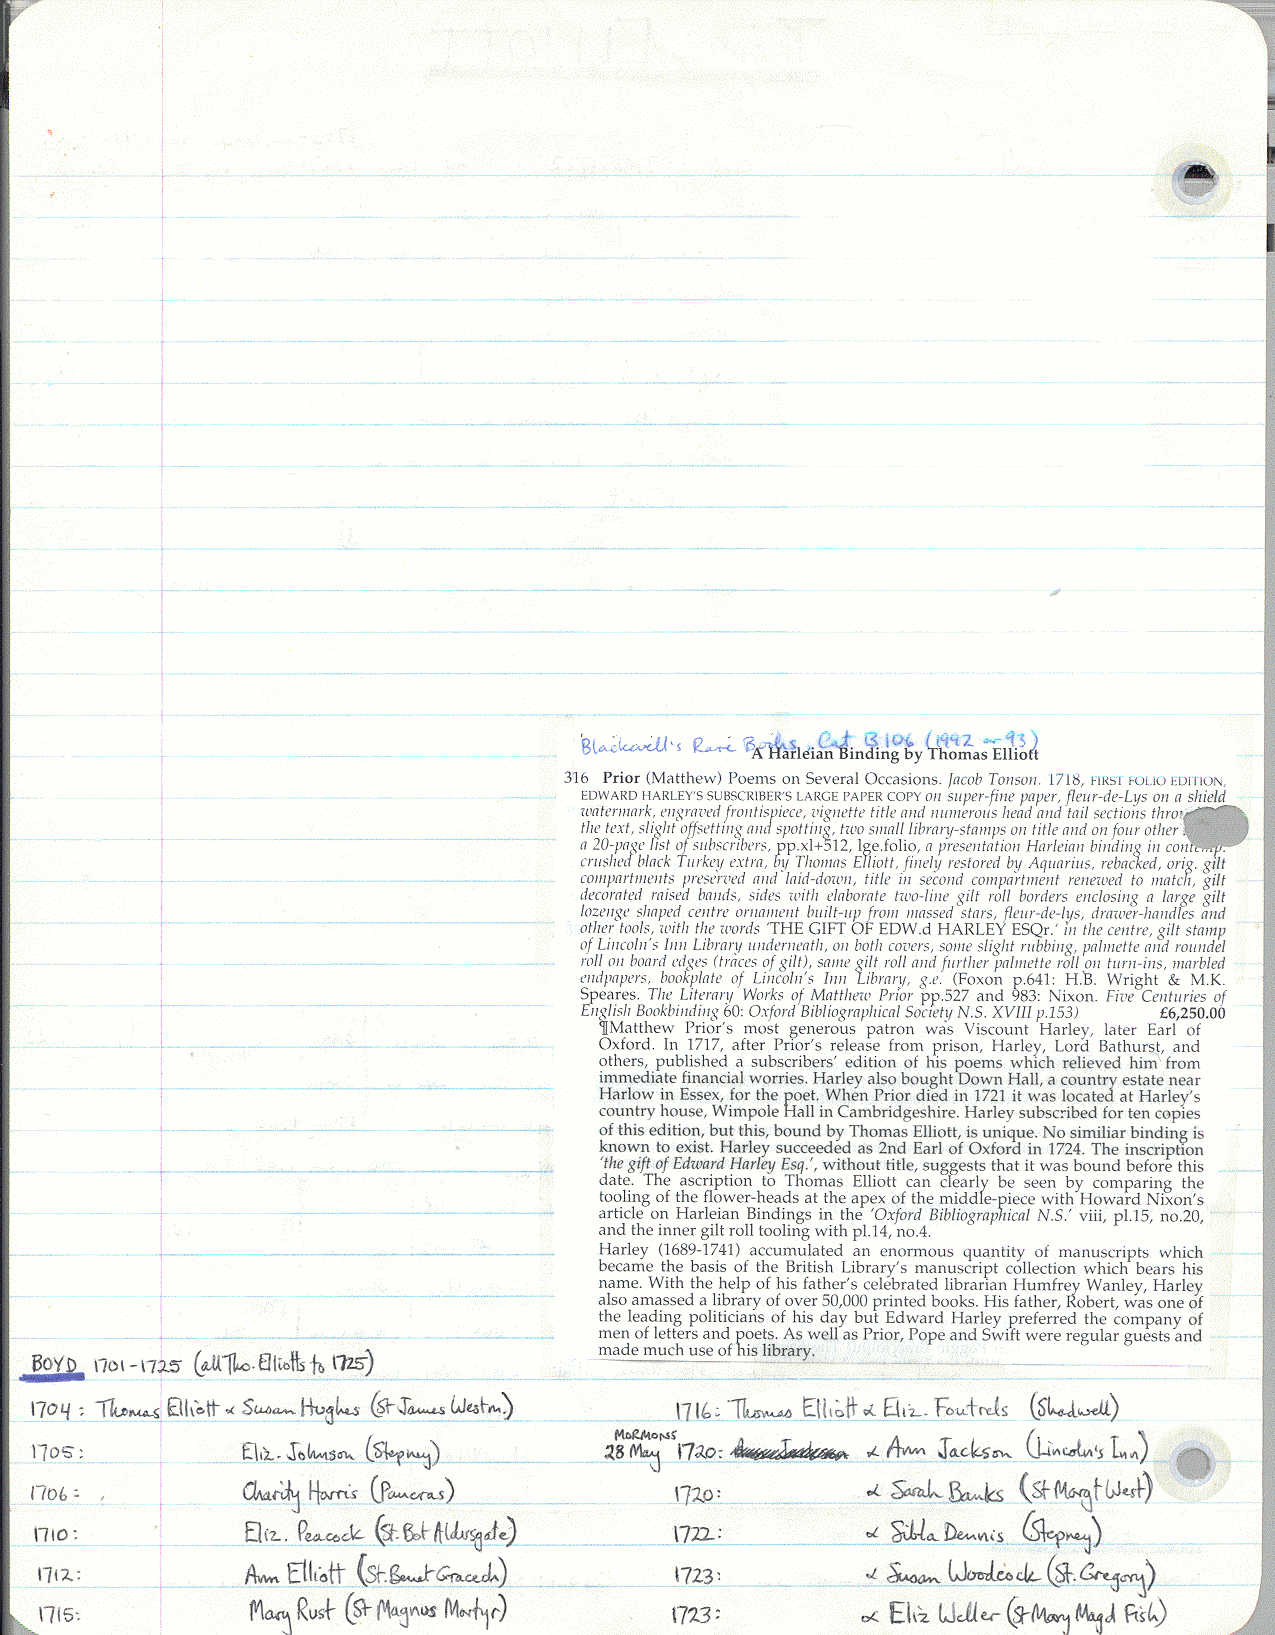 Blackwell's Rare Books, Cat. B106 (1992 or 93)
A Harleian Binding by Thomas Elliott
316 Prior (Matthew) Poems on Several Occasions. Jacob Tonson. 1718, FIRST FOLIO EDITION,
EDWARD HARLEY'S SUBSCRIBER'S LARGE PAPER COPY on super-fine paper, fleur-de-Lys on a shield
watermark, engraved frontispiece, vignette title and numerous head and tail sections
the text, slight offsetting and spotting, two small library-stamps on title and on four other
a 20-page list of subscribers, pp.xl+512, lge.folio, a presentation Harleian binding in contemp.
crushed black Turkey extra, by Thomas Elliott, finely restored by Aquarius, rebacked, orig. gilt
compartments preserved and laid-down, title in second compartment renewed to match, gilt
decorated raised bands, sides with elaborate two-line gilt roll borders enclosing a large gilt
lozenge shaped centre ornament built-up from massed stars, fleur-de-lys, drawer-handles and
other tools, with the words 'THE GIFT OF EDW.d HARLEY ESQr.' in the centre, gilt stamp
of Lincoln's Inn Library underneath, on both covers, some slight rubbing, palmette and roundel
roll on board edges (traces of gilt), same gilt roll and further palmette roll on turn-ins, marbled
endpapers, bookplate of Lincoln's Inn Library, g.e. (Foxon p.641: H.B. Wright & M.K.
Speares. The Literary Works of Matthew Prior pp.527 and 983: Nixon. Five Centuries of
English Bookbinding 60: Oxford Bibliographical Society N.S. XVIII p.153) £6,250.00
¶Matthew Prior's most generous patron was Viscount Harley, later Earl of
Oxford. In 1717, after Prior's release from prison, Harley, Lord Bathurst, and
others, published a subscribers' edition of his poems which relieved him from
immediate financial worries. Harley also bought Down Hall, a country estate near
Harlow in Essex, for the poet. When Prior died in 1721 it was located at Harley's
country house, Wimpole Hall in Cambridgeshire. Harley subscribed for ten copies
of this edition, but this, bound by Thomas Elliott, is unique. No similiar binding is
known to exist. Harley succeeded as 2nd Earl of Oxford in 1724. The inscription
'the gift of Edward Harley Esq.', without title, suggests that it was bound before this
date. The ascription to Thomas Elliott can clearly be seen by comparing the
tooling of the flower-heads at the apex of the middle-piece with Howard Nixon's
article on Harleian Bindings in the 'Oxford Bibliographical N.S.' viii, pl.15, no.20,
and the inner gilt roll tooling with pl.14, no.4.
Harley (1689-1741) accumulated an enormous quantity of manuscripts which
became the basis of the British Library's manuscript collection which bears his
name. With the help of his father's celebrated librarian Humfrey Wanley, Harley
also amassed a library of over 50,000 printed books. His father, Robert, was one of
the leading politicians of his day but Edward Harley preferred the company of
men of letters and poets. As well as Prior, Pope and Swift were regular guests and
made much use of his library.
BOYD 1701-1725 (all Tho. Elliotts to 1725)
1704: Thomas Elliott & Susan Hughes (St James Westm.)
1705: Eliz. Johnson (Stepney)
1706: Charity Harris (Pancras)
1710: Eliz. Peacock (St. Bot Aldersgate)
1712: Ann Elliott (St. Benet Gracech)
1715: Mary Rust (St Magnus Martyr)
1716: Thomas Elliott & Eliz. Foutrels (Shadwell)
MORMONS
28 May 1720: & Ann Jackson (Lincoln's Inn)
1720: & Sarah Banks (St Margt West)
1722: & Sibla Dennis (Stepney)
1723: & Susan Woodcock (St. Gregory)
1723: & Eliz Weller (St Mary Magd Fish)